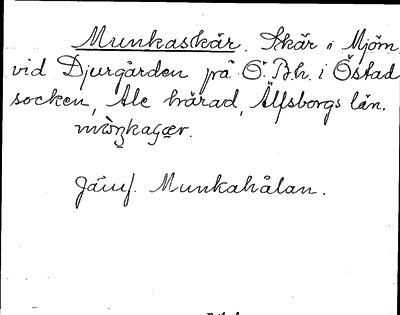 Munkaskär. Skär i Mjörn
vid Djurgården på Ö. Bh. i Östad
socken, Ale härad, Älfsborgs län.
Jämf. Munkahålan.